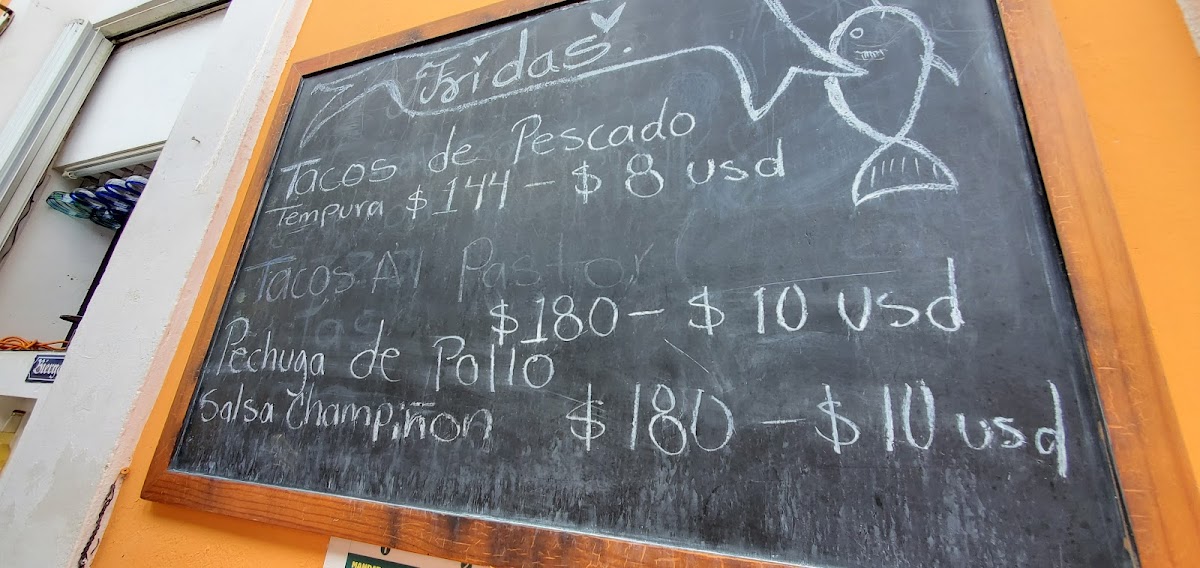 Fridas.
Tacos de Pescado
Tempura $144 - $8 usd
Tacos Al Pastor
$180 - $10 usd
Pechuga de Pollo
Salsa Champiñon $180 - $10 usd